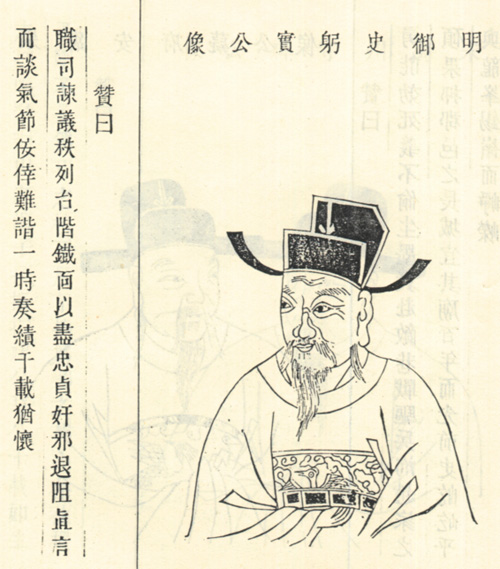 明御史躬實公像
贊曰
職司諫議秩列台階鐵面以盡忠貞奸邪退阻眞言
而談氣節佞倖難諧一時奏績千載猶懷